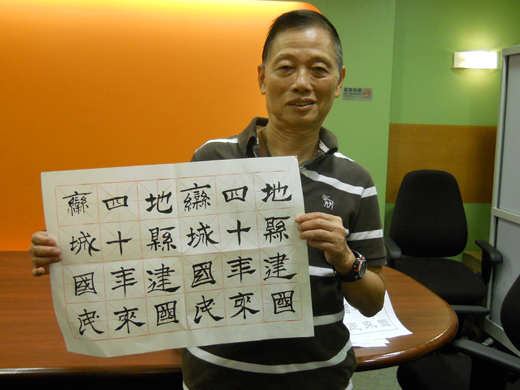 地縣建國
四十年來
欒城國民
地縣建國
四十年來
欒城國民